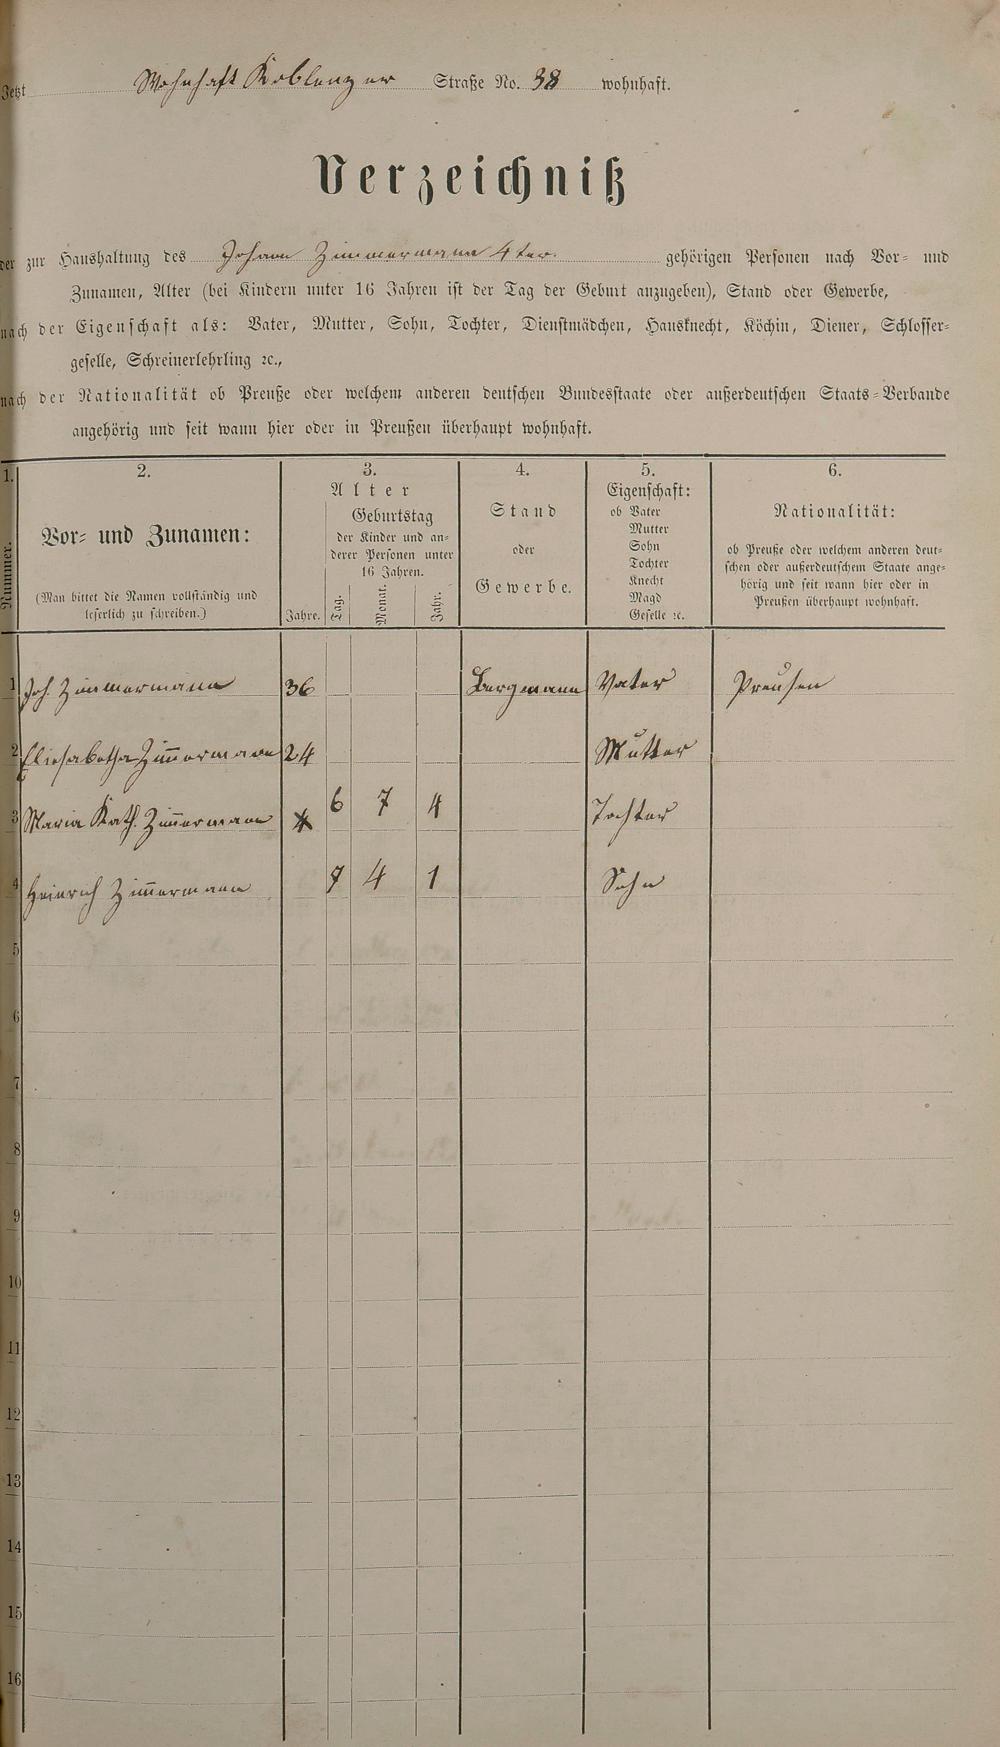 Jetzt Wohnhaft Koblenzer Straße No. 38 wohnhaft.
Verzeichniß
der zur Haushaltung des Johann Zimmermann 4ter. gehörigen Personen nach Vor- und
Zunamen, Alter (bei Kindern unter 16 Jahren ist der Tag der Geburt anzugeben), Stand oder Gewerbe,
nach der Eigenschaft als: Vater, Mutter, Sohn, Tochter, Dienstmädchen, Hausknecht, Köchin, Diener, Schlosser-
geselle, Schreinerlehrling ꝛc.,
nach der Nationalität ob Preuße oder welchem anderen deutschen Bundesstaate oder außerdeutschen Staats-Verbande
angehörig und seit wann hier oder in Preußen überhaupt wohnhaft.
1. 2. 3. 4. 5. 6.
Nummer.
Vor- und Zunamen:
(Man bittet die Namen vollständig und
leserlich zu schreiben.)
Alter
Geburtstag
der Kinder und an-
derer Personen unter
16 Jahren.
Jahre. Tag. Monat. Jahr.
Stand
oder
Gewerbe.
Eigenschaft:
ob Vater
Mutter
Sohn
Tochter
Knecht
Magd
Geselle ꝛc.
Nationalität:
ob Preuße oder welchem anderen deut-
schen oder außerdeutschem Staate ange-
hörig und seit wann hier oder in
Preußen überhaupt wohnhaft.
1 Joh Zimmermann 36 Bergmann Vater Preusen
2 Eliesabetha Zim̅ermann 24 Mutter
3 Maria Kath. Zim̅ermann 6 7 4 Tochter
4 Heinrich Zim̅ermann 7 4 1 Sohn
5
6
7
8
9
10
11
12
13
14
15
16